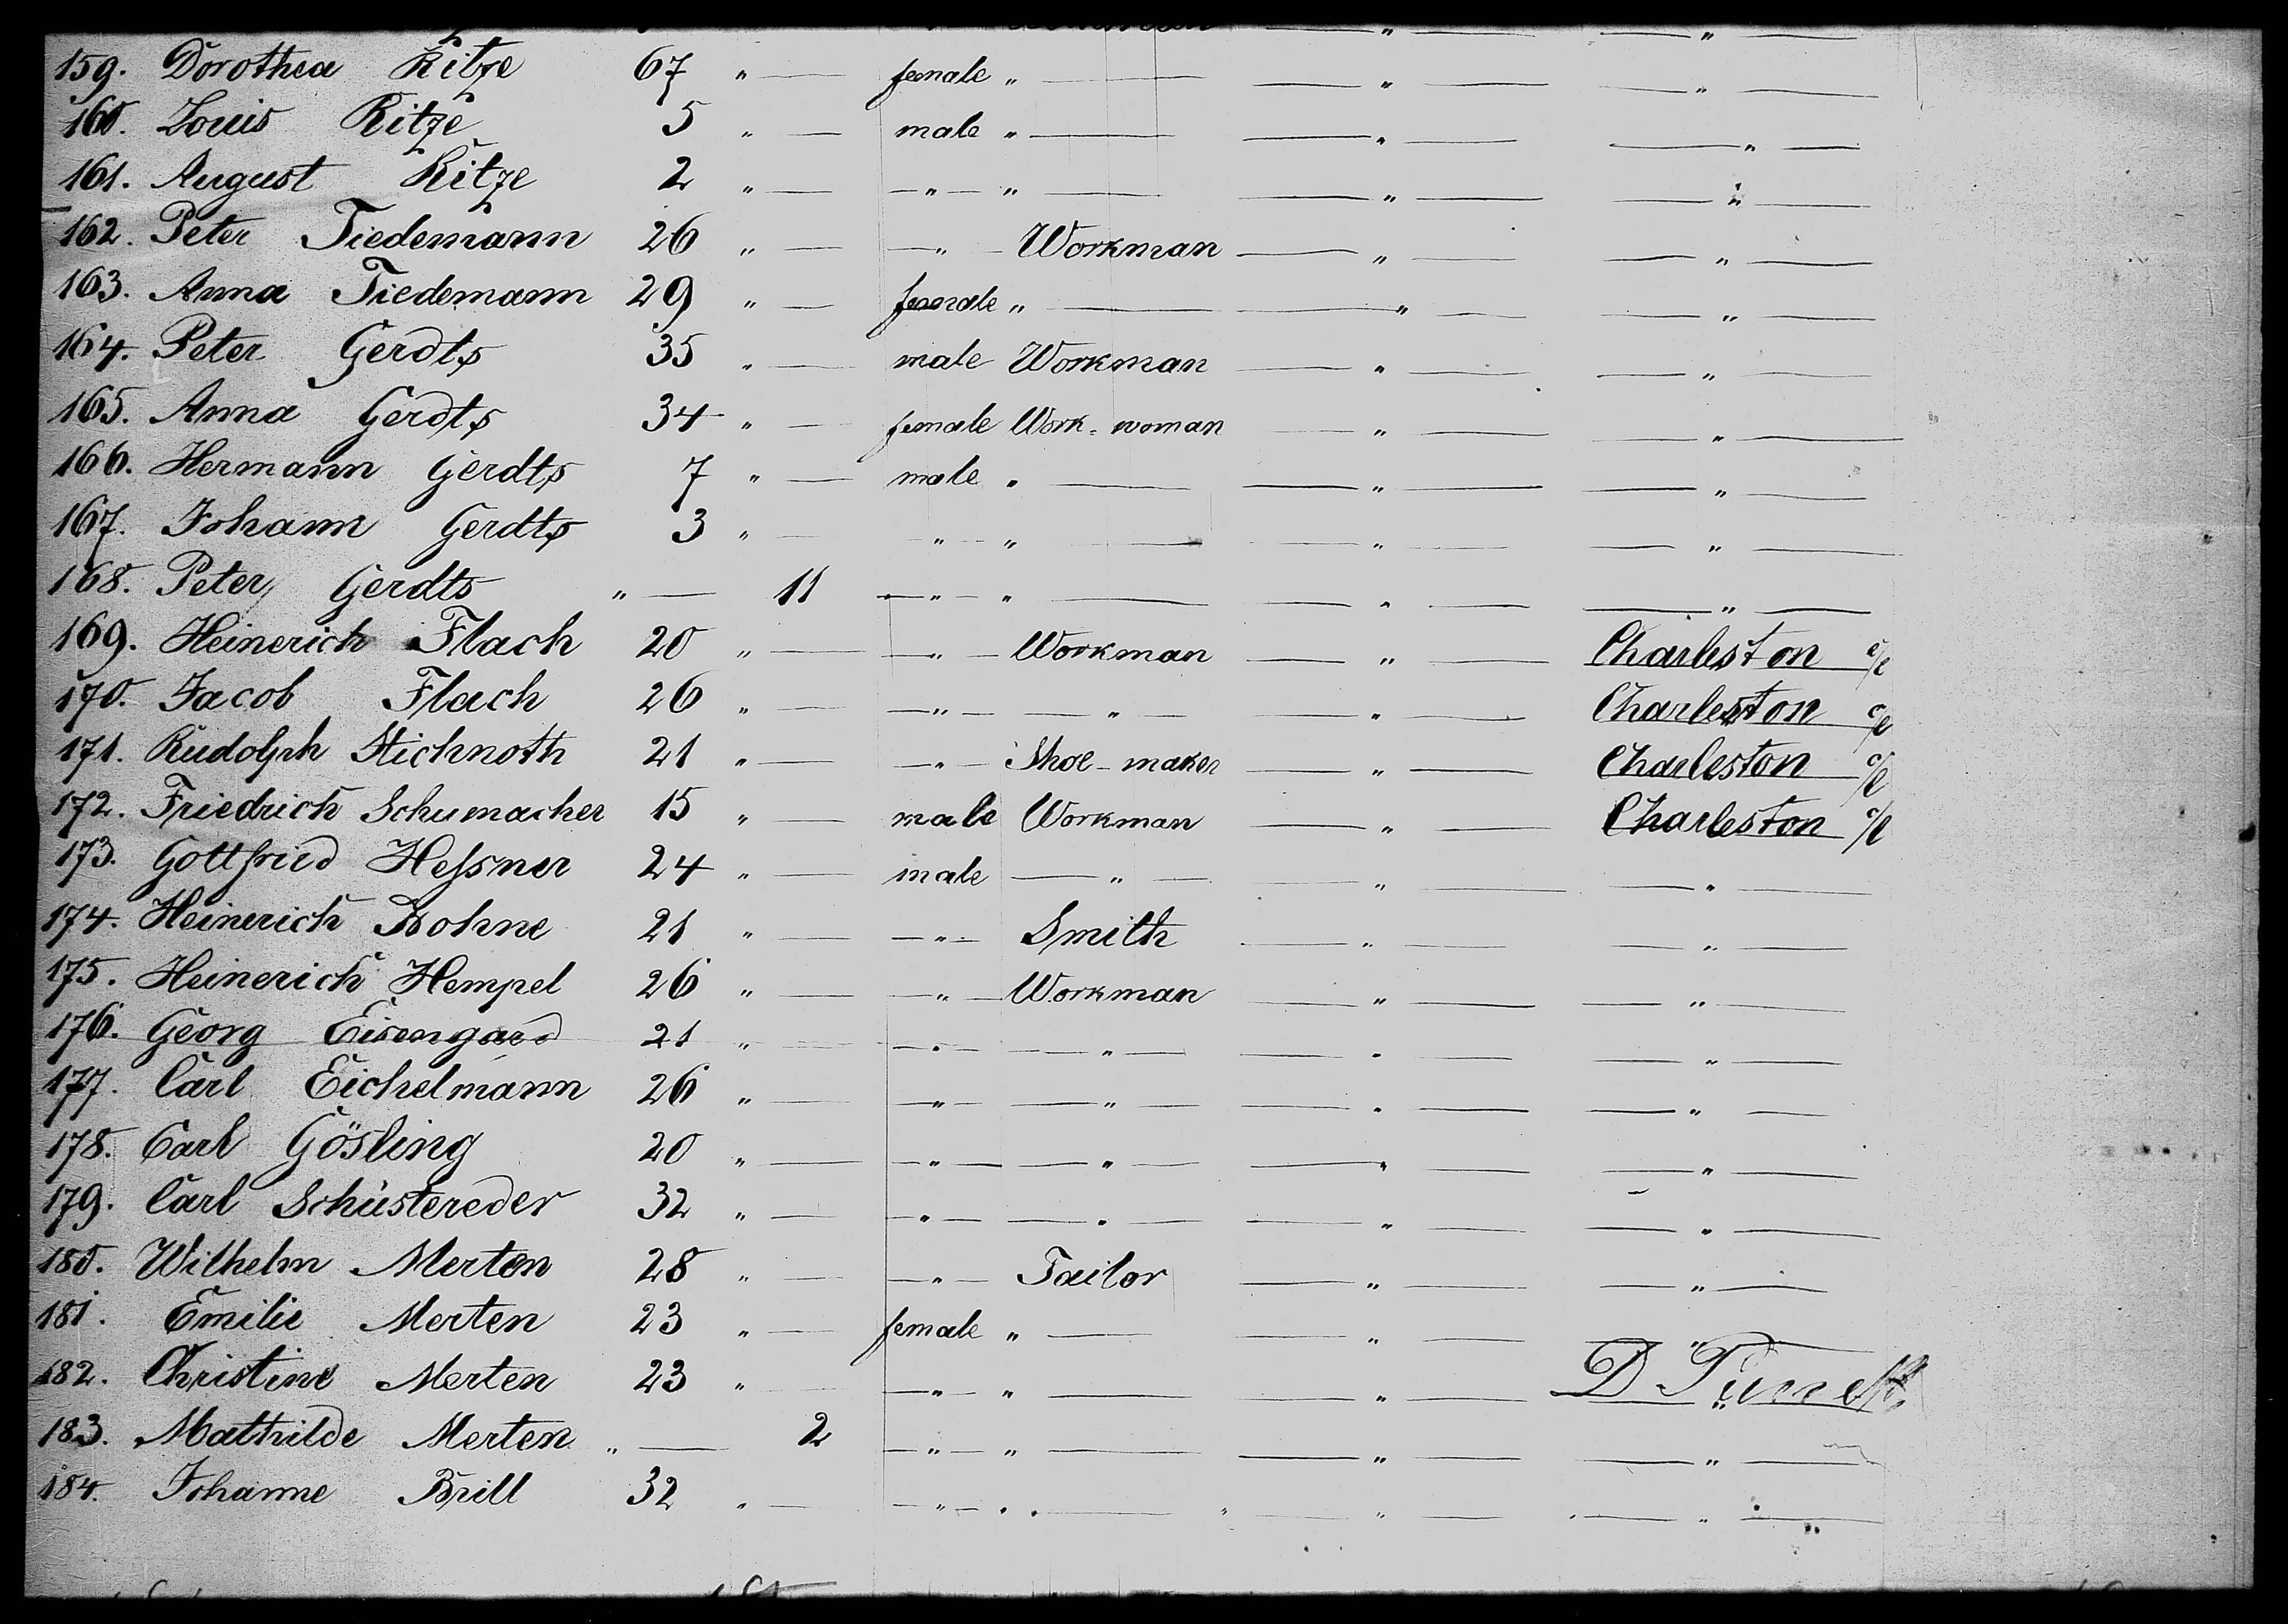 159. Dorothea Ritze 67 " — female " — — " — — " —
160. Louis Ritze 5 " — male " — — " — — " —
161. August Ritze 2 " — — " — " — — " — — " —
162. Peter Tiedemann 26 " — — " — Workman — " — — " —
163. Anna Tiedemann 29 " — female " — — " — — " —
164. Peter Gerdts 35 " — male Workman — " — — " —
165. Anna Gerdts 34 " — female Work=woman — " — — " —
166. Hermann Gerdts 7 " — male " — — " — — " —
167. Johann Gerdts 3 " — " " — — " — — " —
168. Peter Gerdts " — 11 — " — " — — " — — " —
169. Heinerich Flach 20 " — — " — Workman — " — Charleston
170. Jacob Flach 26 " — — " — — " — — " — Charleston
171. Rudolph Stichnoth 21 " — — " — Shoe-maker — " — Charleston
172. Friedrich Schumacher 15 " — male Workman — " — Charleston
173. Gottfried Hessner 24 " — male — " — — " — — " —
174. Heinerich Bohne 21 " — — " — Smith — " — — " —
175. Heinerich Hempel 26 " — — " — Workman — " — — " —
176. Georg Eisengard 21 " — — " — — " — — " — — " —
177. Carl Eichelmann 26 " — — " — — " — — " — — " —
178. Carl Gösling 20 " — — " — — " — — " — — " —
179. Carl Schüstereder 32 " — — " — — " — — " — — " —
180. Wilhelm Merten 28 " — — " — Tailor — " — — " —
181. Emilie Merten 23 " — female " — — " — — " —
182. Christine Merten 23 " — — " — " — — " — — " —
183. Mathilde Merten " — 2 — " — " — — " — — " —
184. Johanne Brill 32 " — — " — " — — " — — " —